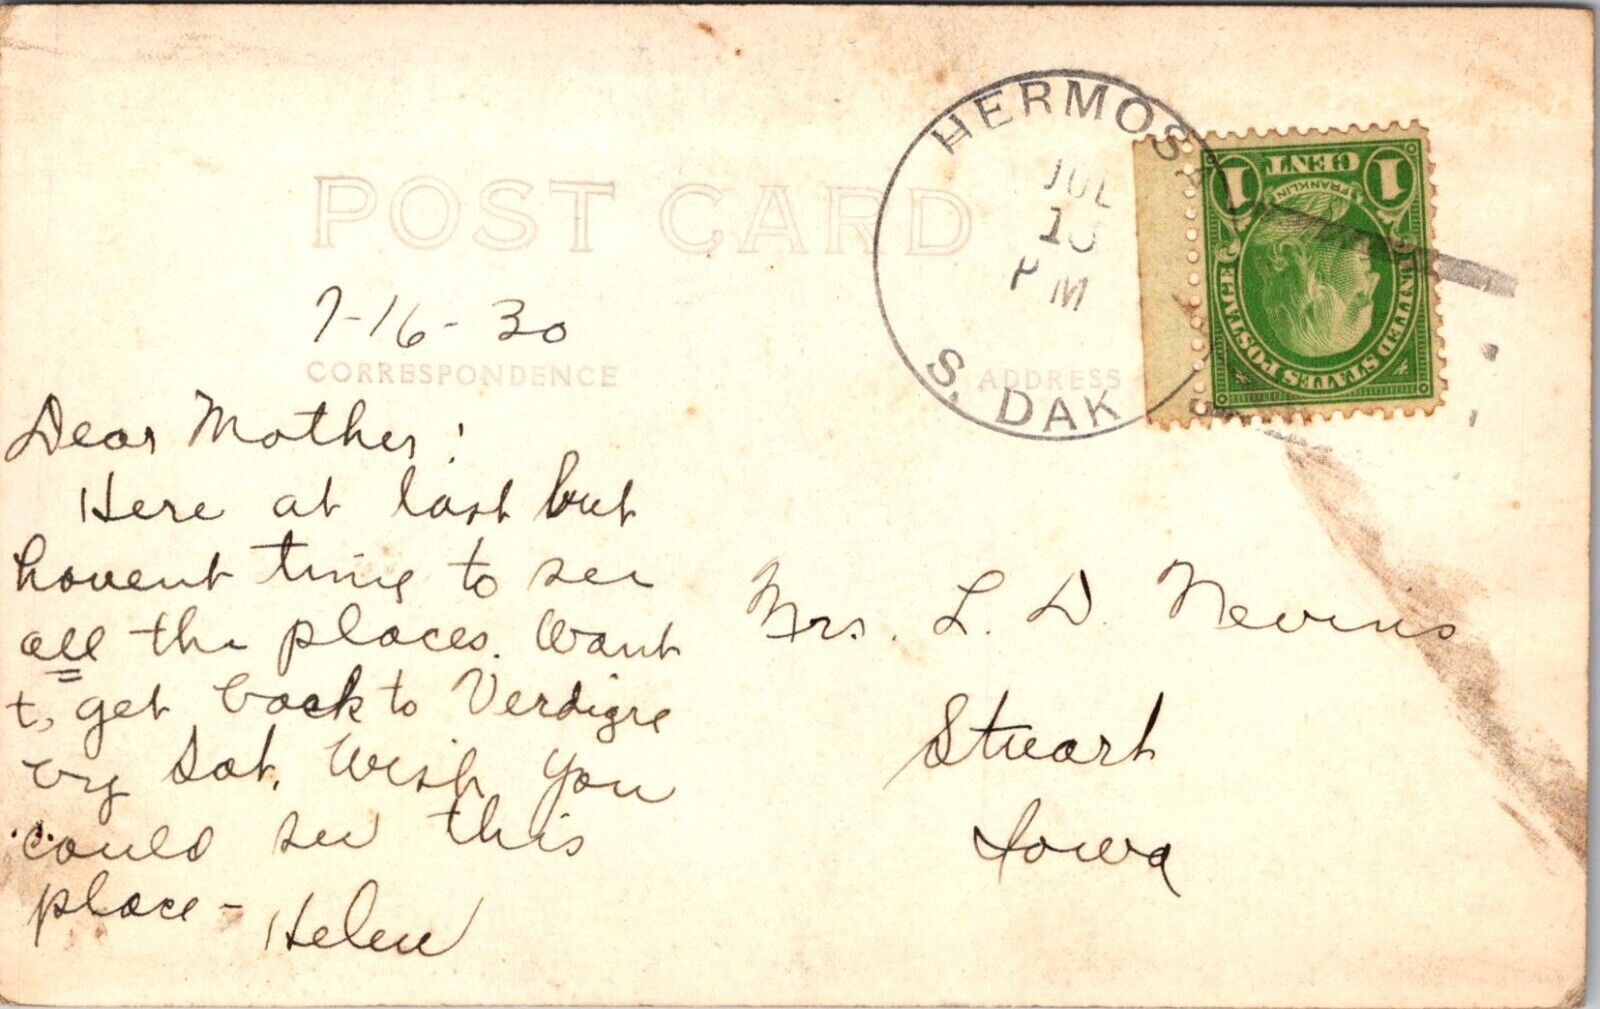 POST CARD
HERMOSA
JUL
PM
S. DAK
1 CENT 1
FRANKLIN
UNITED STATES POSTAGE
7-16-30
CORRESPONDENCE
ADDRESS
Dear Mother:
Here at last but
havent time to see
all the places. Want
to get back to Verdigre
by Sat. Wish you
could see this
place-
Helen
Mrs. L. D. Nevins
Stuart
Iowa